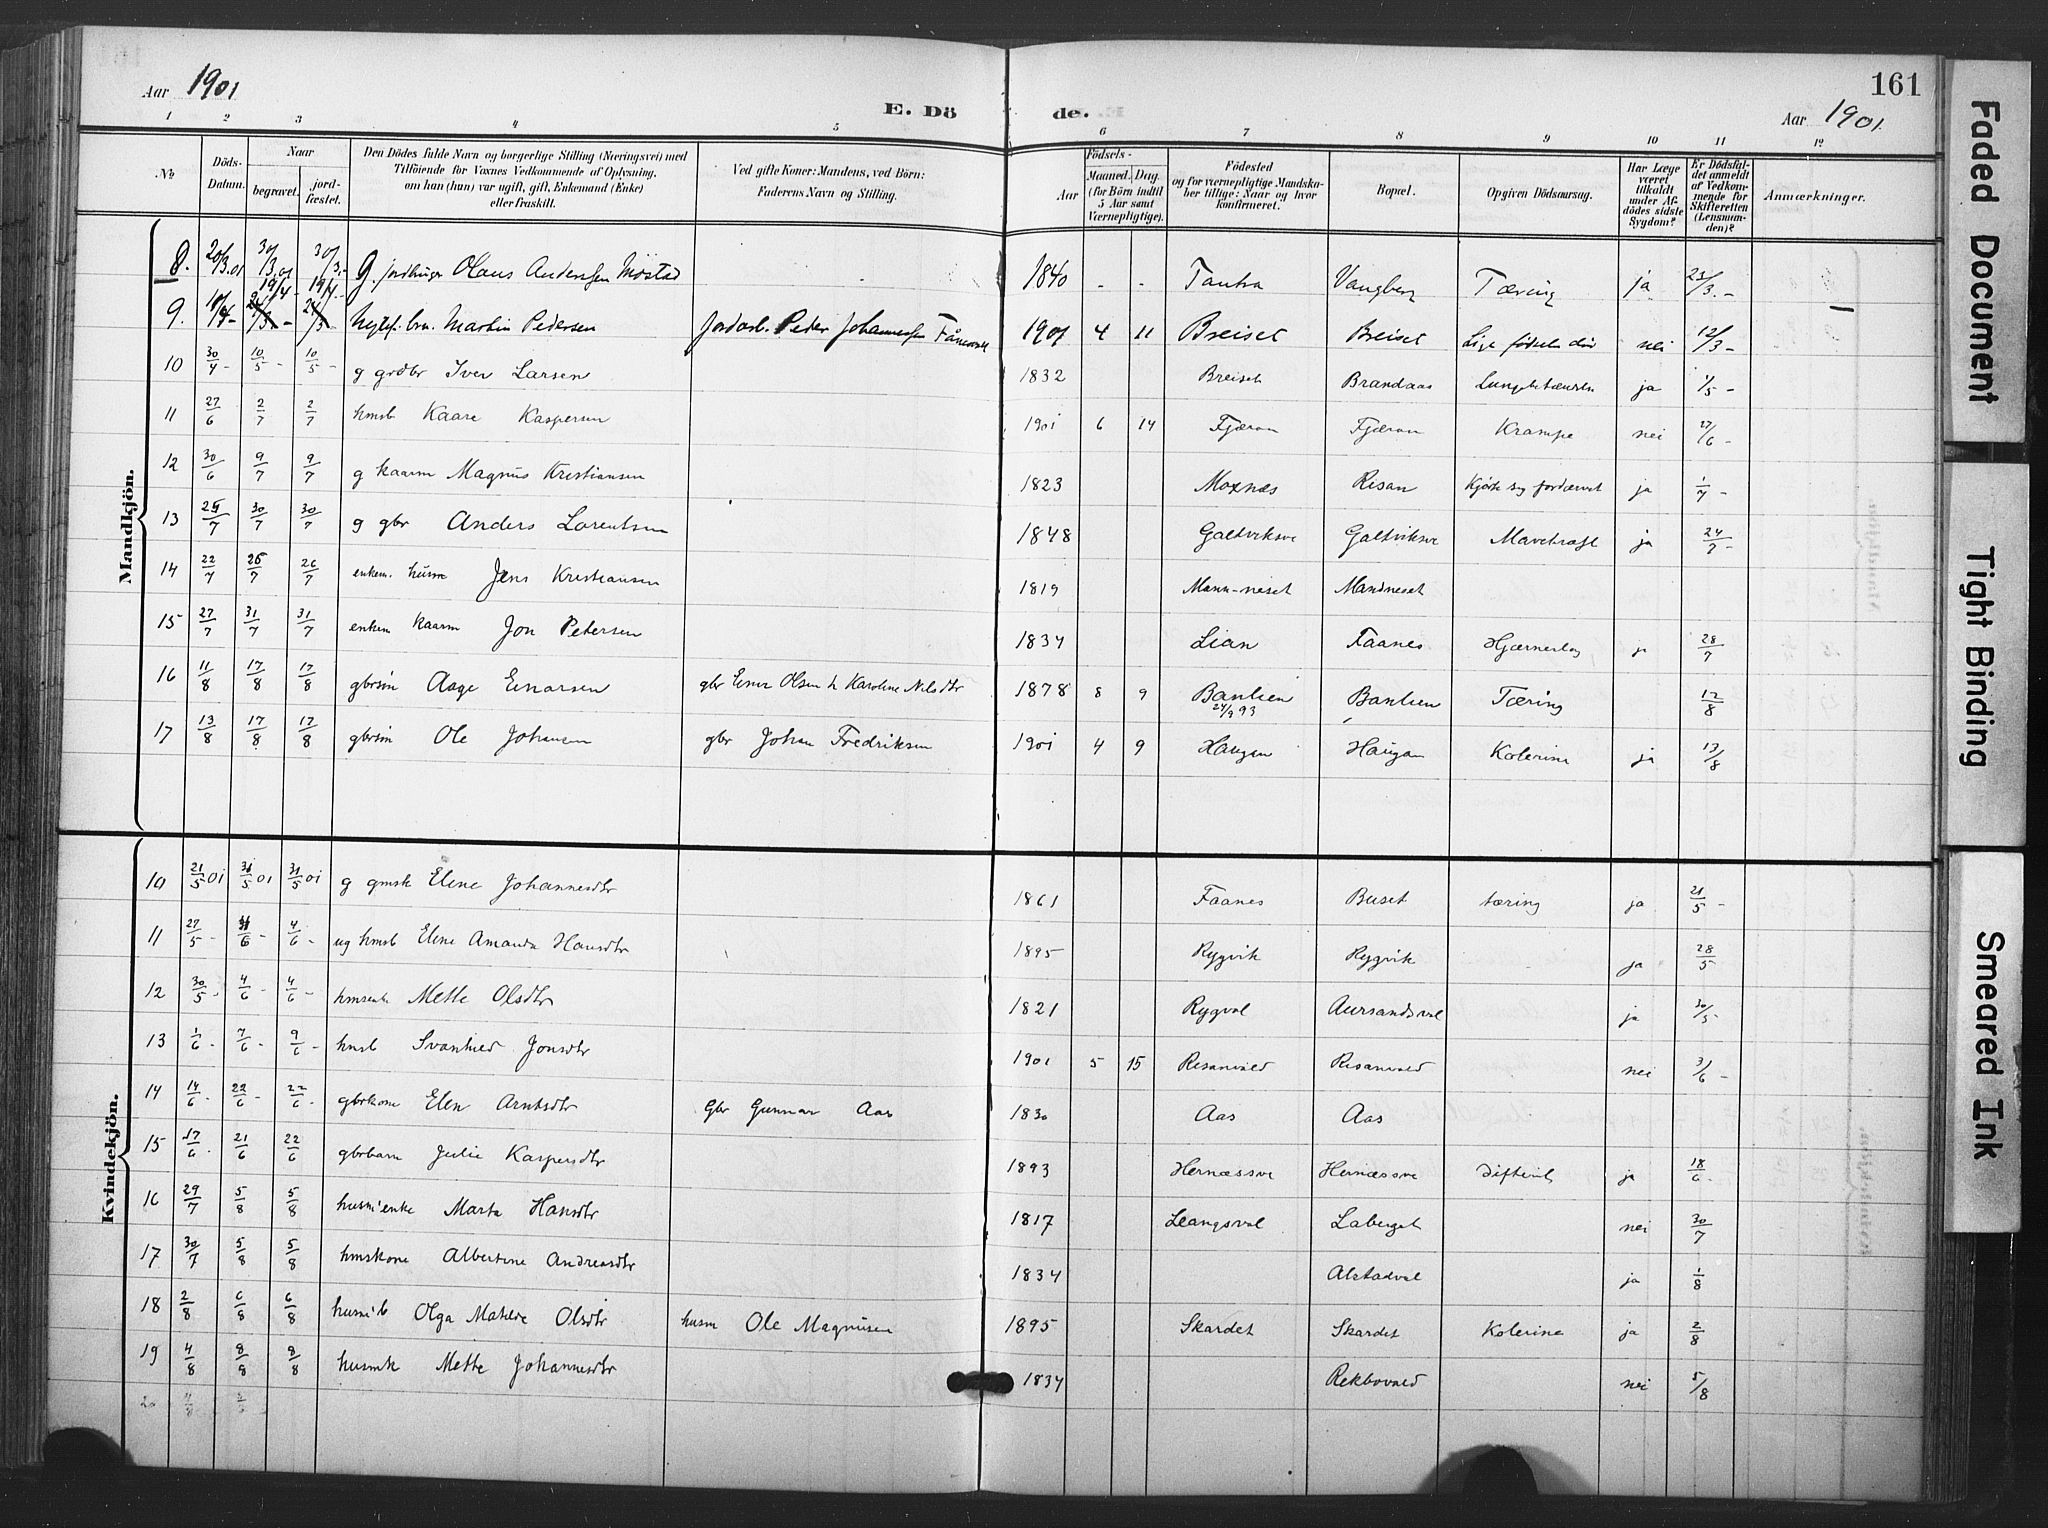 161
Aar 1901
E. Dö de.
Aar 1901.
1 2 3 4 5 6 7 8 9 10 11 12
No
Döds-Datum.
Naar
begravet.
jord-fæstet.
Den Dödes fulde Navn og borgerlige Stilling (Næringsvei) med
Tilföiende for Voxnes Vedkommende af Oplysning,
om han (hun) var ugift, gift, Enkemand (Enke)
eller fraskilt.
Ved gifte Koner: Mandens, ved Börn:
Faderens Navn og Stilling.
Födsels-
Aar
Maaned. Dag.
(for Börn indtil
5 Aar samt
Værnepligtige).
Födested
og for værnepligtige Mandska-
ber tillige: Naar og hvor
konfirmeret.
Bopæl.
Opgiven Dödsaarsag.
Har Læge
været
tilkaldt
under Af-
dödes sidste
Sygdom?
Er Dödsfal-
det anmeldt
af Vedkom-
mende for
Skifteretten
(Lensman-
den)?
Anmærkninger.
Mandkjön.
8. 20/3.01 30/3.01 30/3.- G. jordbruger Olaus Andersen Möstad 1840 - - Tautra Vangberg Tæring ja 23/3.-
9. 11/4- 19/4- 19/4- Martin Pedersen Peder Johannessen 1901 4 11 Breiset Breiset nei 12/3-
10 30/4- 10/5- 10/5- g grdbr Iver Larsen 1832 Breiset Brandaas Lungebetændelse ja 1/5-
11 27/6 2/7 2/7 hmsb Kaare Kaspersen 1901 6 14 Fjæran Fjæran Krampe nei 27/6-
12 30/6 9/7 9/7 g kaarm Magnus Kristiansen 1823 Moxnæs Risan Kjørte sig fordærvet ja 1/7-
13 24/7 30/7 30/7 g gbr Anders Lorentsen 1848 Galtviksve Galtviksve Mavekræft ja 24/7-
14 22/7 26/7 26/7 enkem. husm Jens Kristiansen 1819 Mann-neset Mandneset
15 27/7 31/7 31/7 enkem kaarm Jon Petersen 1834 Lian Faanes Hjærneslag ja 28/7
16 11/8 17/8 17/8 gbrsøn Aage Einarsen gbr Einar Olsen h Karoline Nilsdtr 1878 8 9 Banlien Banlien Tæring 12/8
24/9 93
17 13/8 17/8 17/8 gbrsøn Ole Johansen gbr Johan Fredriksen 1901 4 9 Haugan Haugan Kolerine ja 13/8
Kvindekjön.
10 21/5 01 31/5 01 31/5 01 g gmsk Elene Johannesdtr 1861 Faanes Buset tæring ja 21/5-
11 27/5- 4/6- 4/6- ug hmsb Eline Amanda Hansdtr 1895 Rygvik Rygvik ja 28/5
12 30/5- 4/6- 4/6- hmsenke Mette Olsdtr 1821 Rygval Aursandsval ja 30/5-
13 1/6- 7/6- 9/6- hmsb Svanhild Jonsdtr 1901 5 15 Risanvald Risanvald nei 3/6-
14 14/6- 22/6- 22/6- gbrkone Elen Arntsdtr Gbr Gunnar Aas 1830 Aas Aas
15 17/6. 21/6 22/6 gbrbarn Julie Kaspersdtr 1893 Hernæssve Hernæssve difterit ja 18/6-
16 29/7 5/8 5/8 husm'enke Marta Hansdtr 1817 Leangsval Laberget nei 30/7
17 30/7 5/8 5/8 hmskone Albertine Andreasdtr 1834 Alstadval ja 1/8
18 2/8 6/8 6/8 husm'b Olga Matilde Olsdtr husm Ole Magnusen 1895 Skardet Skardet Kolerine ja 2/8
19 4/8 8/8 8/8 husmk Mette Johannesdtr 1834 Rekbovald nei 5/8
20
Faded Document
Tight Binding
Smeared Ink